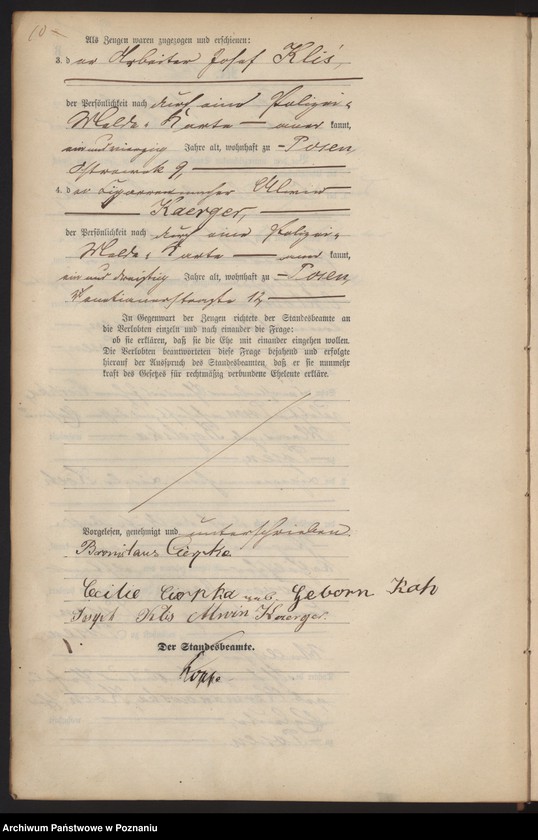 10
Als Zeugen waren zugezogen und erschienen:
3. der Arbeiter Josef Klis,
der Persönlichkeit nach durch eine Polizei-
Melde-Karte — aner kannt,
ein und vierzig Jahre alt, wohnhaft zu Posen
9,
4. der Cigarrenmacher Alwin
Kaerger,
der Persönlichkeit nach durch eine Polizei-
Melde-Karte — aner kannt,
ein und dreißig Jahre alt, wohnhaft zu Posen
12
In Gegenwart der Zeugen richtete der Standesbeamte an
die Verlobten einzeln und nach einander die Frage:
ob sie erklären, daß sie die Ehe mit einander eingehen wollen.
Die Verlobten beantworteten diese Frage bejahend und erfolgte
hierauf der Ausspruch des Standesbeamten, daß er sie nunmehr
kraft des Gesetzes für rechtmäßig verbundene Eheleute erkläre.
Vorgelesen, genehmigt und unterschrieben.
Bronislaus
geb. Geborn
Josef Klis Alwin Kaerger.
Der Standesbeamte.
Koppe
Archiwum Państwowe w Poznaniu